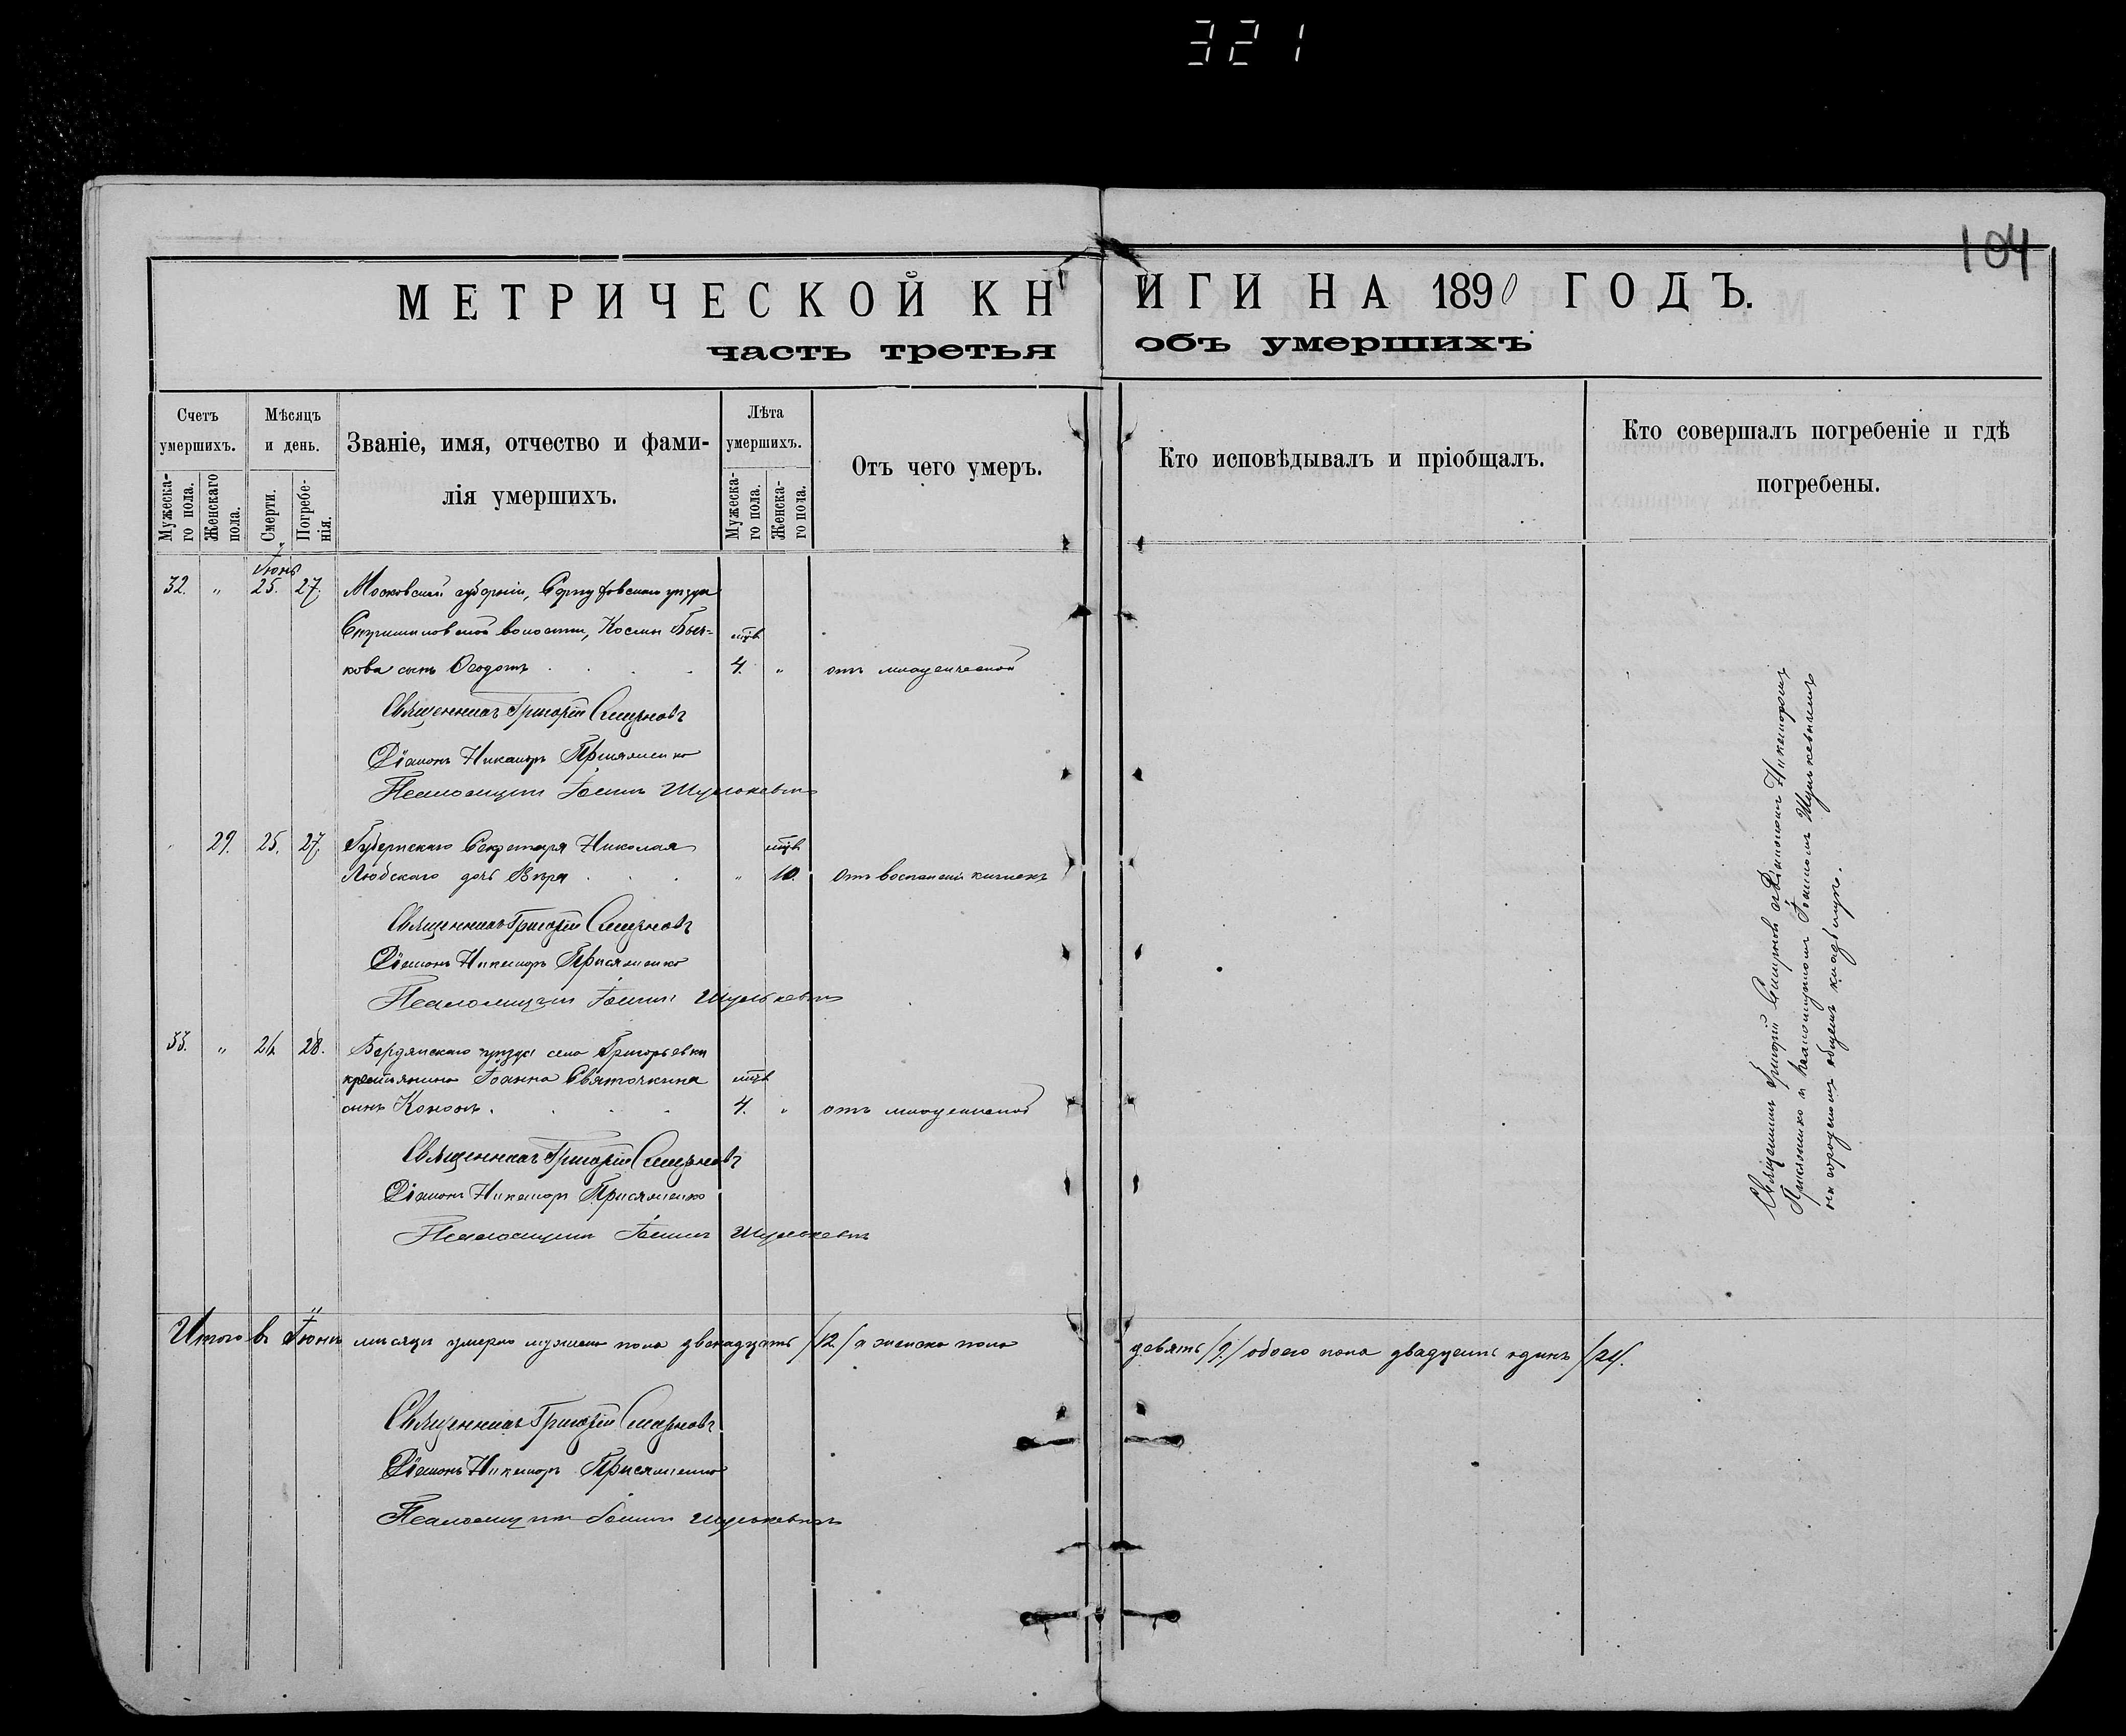 321
104
МЕТРИЧЕСКОЙ КНИГИ НА 1890 ГОДЪ.
часть третья объ умершихъ
Счетъ умершихъ.
Мужеска-
го пола.
Женскаго
пола.
Мѣсяцъ
и день.
Смерти.
Погребе-
нія.
Званіе, имя, отчество и фами-
лія умершихъ.
Лѣта
умершихъ.
Мужеска-
го пола.
Женска-
го пола.
Отъ чего умеръ.
Кто исповѣдывалъ и пріобщалъ.
Кто совершалъ погребеніе и гдѣ
погребены.
Іюнь
32. " 25. 27. Московской губерніи, Серпуховскаго уѣзда
волости, Космы Быч-
кова сынъ Ѳеодотъ 4. " отъ младенческой
Священникъ Григорій Смирновъ
Діаконъ Никаноръ Присяженко
Псаломщикъ Іоаннъ Шулькевичъ
29. 25. 27. Губернскаго Секретаря Николая
Любскаго дочь Вѣра " 10. отъ воспаленія кишекъ
Священникъ Григорій Смирновъ
Діаконъ Никаноръ Присяженко
Псаломщикъ Іоаннъ Шулькевичъ
33. " 26 28. Бердянскаго уѣзда села Григорьевки
крестьянина Іоанна Святочкина
сынъ Кононъ. 4. " отъ младенческой
Священникъ Григорій Смирновъ
Діаконъ Никаноръ Присяженко
Псаломщикъ Іоаннъ Шулькевичъ
Священникъ Григорій Смирновъ съ Діакономъ Никаноромъ
Присяженко и псаломщикомъ Іоанномъ Шулькевичемъ
на городскомъ общемъ кладбищѣ.
Итого въ Іюнѣ мѣсяцѣ умерло мужеска пола двѣнадцать /12/ а женска пола девять /9/ обоего пола двадцать одинъ /21/.
Священникъ Григорій Смирновъ
Діаконъ Никаноръ Присяженко
Псаломщикъ Іоаннъ Шулькевичъ